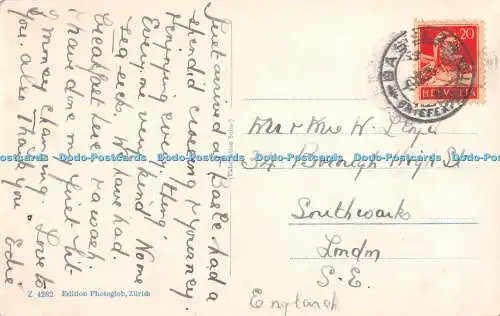 Just arrived at Basle. had a
splendid crossing & journey
Enjoying every thing.
Everyone very kind. None
sea sick. We have had
breakfast here & a wash.
I have done my first bit
of money changing. Love to
you. also Thank you. Edie
Z 4262 Edition Photoglob, Zürich
20
HELVETIA
BASEL
BRIEFEXP.
Mr & Mrs W.
34 Borough High St
Southwark
London
S.E.
England
Dodo-Postcards Dodo-Postcards Dodo-Postcards Dodo-Postcards Dodo-Postcards Dodo-Postcards